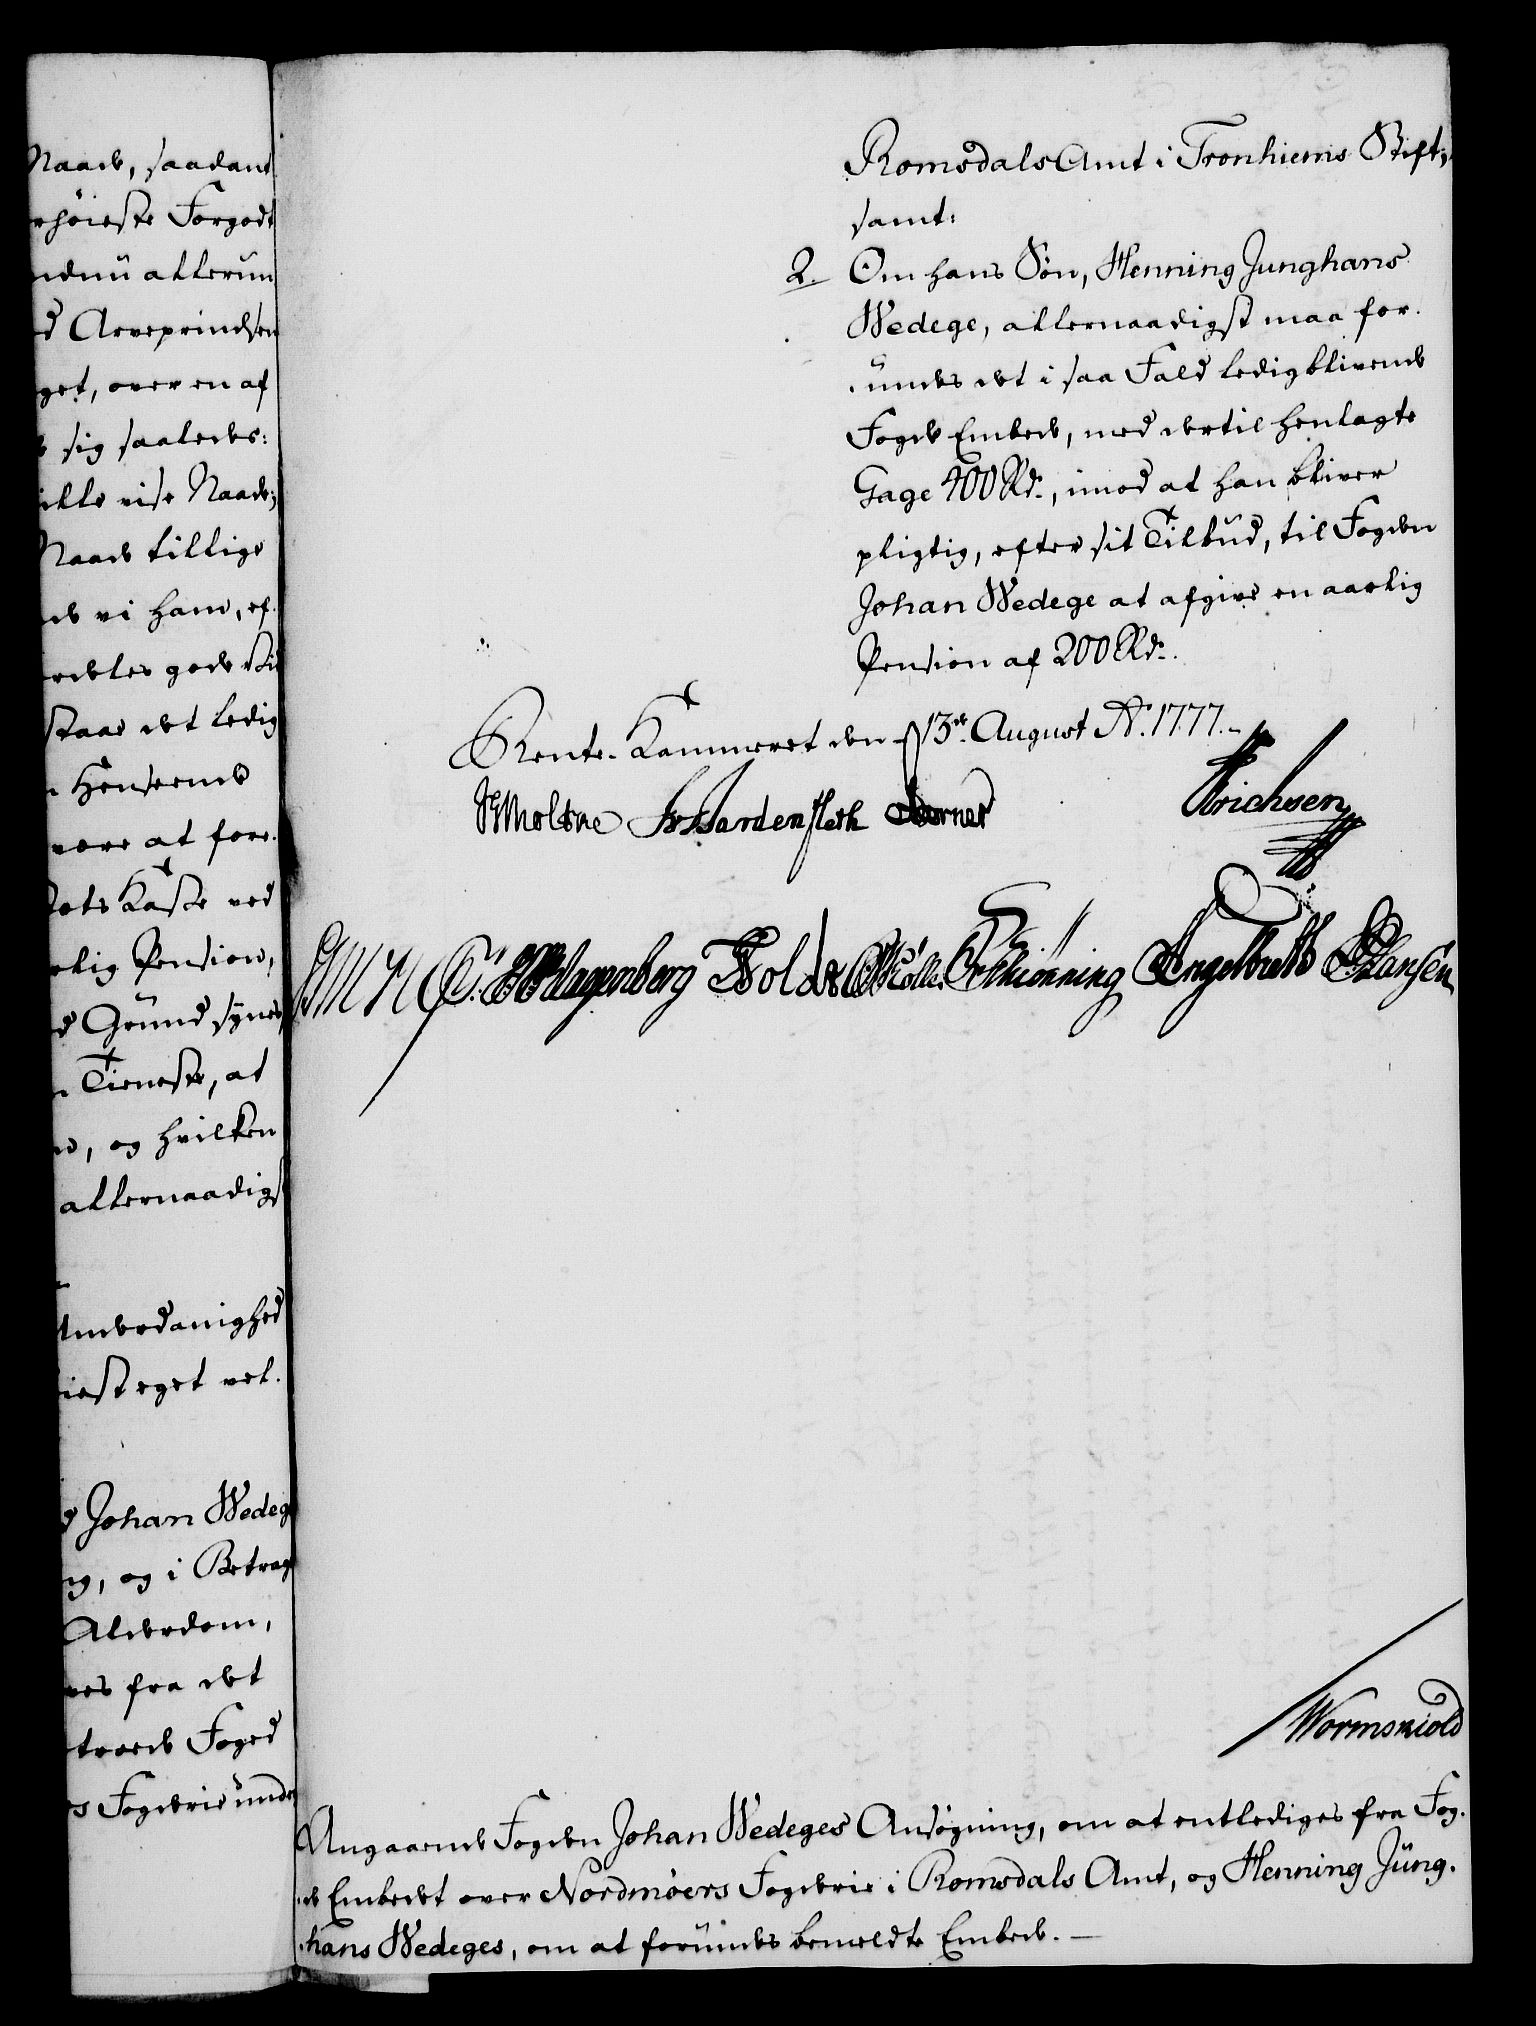 Naade, saadant
rhöieste Forgodt
endnu allerun
d Arveprindsen
get, over en af
sig saaledes:
ville vise Naade,
Naade tillige
de vi ham, ef.
godt
staar det ledig
n Henseende
være at fore.
Kaße ved
rlig Pension,
d Grund synes
n Tieneste, at
og hvilken
allernaadigst
Underdanighed
iest eget vel.
d Johan Wedege
ng, og i Betrag
Alderdom,
ves fra det
troede Foged
s Fogderie unde
Romsdals Amt i Tronhiems Stift,
samt:
2. Om hans Sön, Henning Junghans
Wedege, allernaadigst maa for.
.undes det i saa Fald ledigblivende
Fogde Embede, med dertil henlagte
Gage 400 Rd., imod at han bliver
pligtig, efter sit Tilbud, til Fogden
Johan Wedege at afgive en aarlig
Pension af 200 Rd.
Rente-Kammeret den 13de August Ao. 1777.
Moltke Hardenfleth Berner Erichsen
Klagenberg Holde Möller Schiönning Engelbrett Hansen
Wormskiold
Angaaende Fogden Johan Wedeges Ansögning, om at entlediges fra Fog.
.de Embedet over Nordmöers Fogderie i Romsdals Amt, og Henning Jung.
.hans Wedeges, om at forundes bemeldte Embede. —